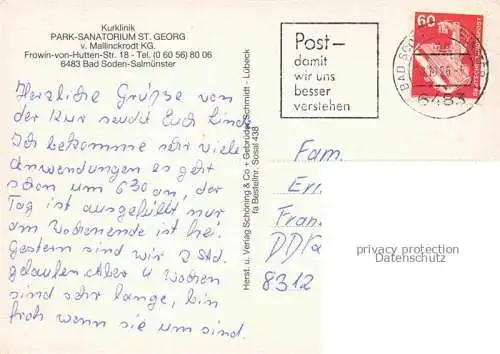 Kurklinik
PARK-SANATORIUM ST. GEORG
v. Mallinckrodt KG.
Frowin-von-Hutten-Str. 18 - Tel. (0 60 56) 80 06
6483 Bad Soden-Salmünster
Herzliche Grüße von
der Kur sendet Euch Linde
Ich bekomme sehr viele
Anwendungen es geht
schon um 6 30 an, der
Tag ist ausgefüllt nur
am Wochenende ist frei.
Gestern sind wir 2 Std.
gelaufen Aber 4 Wochen
sind sehr lange, bin
froh wenn sie um sind.
Herst. u. Verlag Schöning & Co + Gebrüder Schmidt - Lübeck
fa Bestellnr. Sosal 438
Post–
damit
wir uns
besser
verstehen
60
BAD SODEN
6483
Fam.
Eri
Fran
DDR
8312
privacy protection
Datenschutz